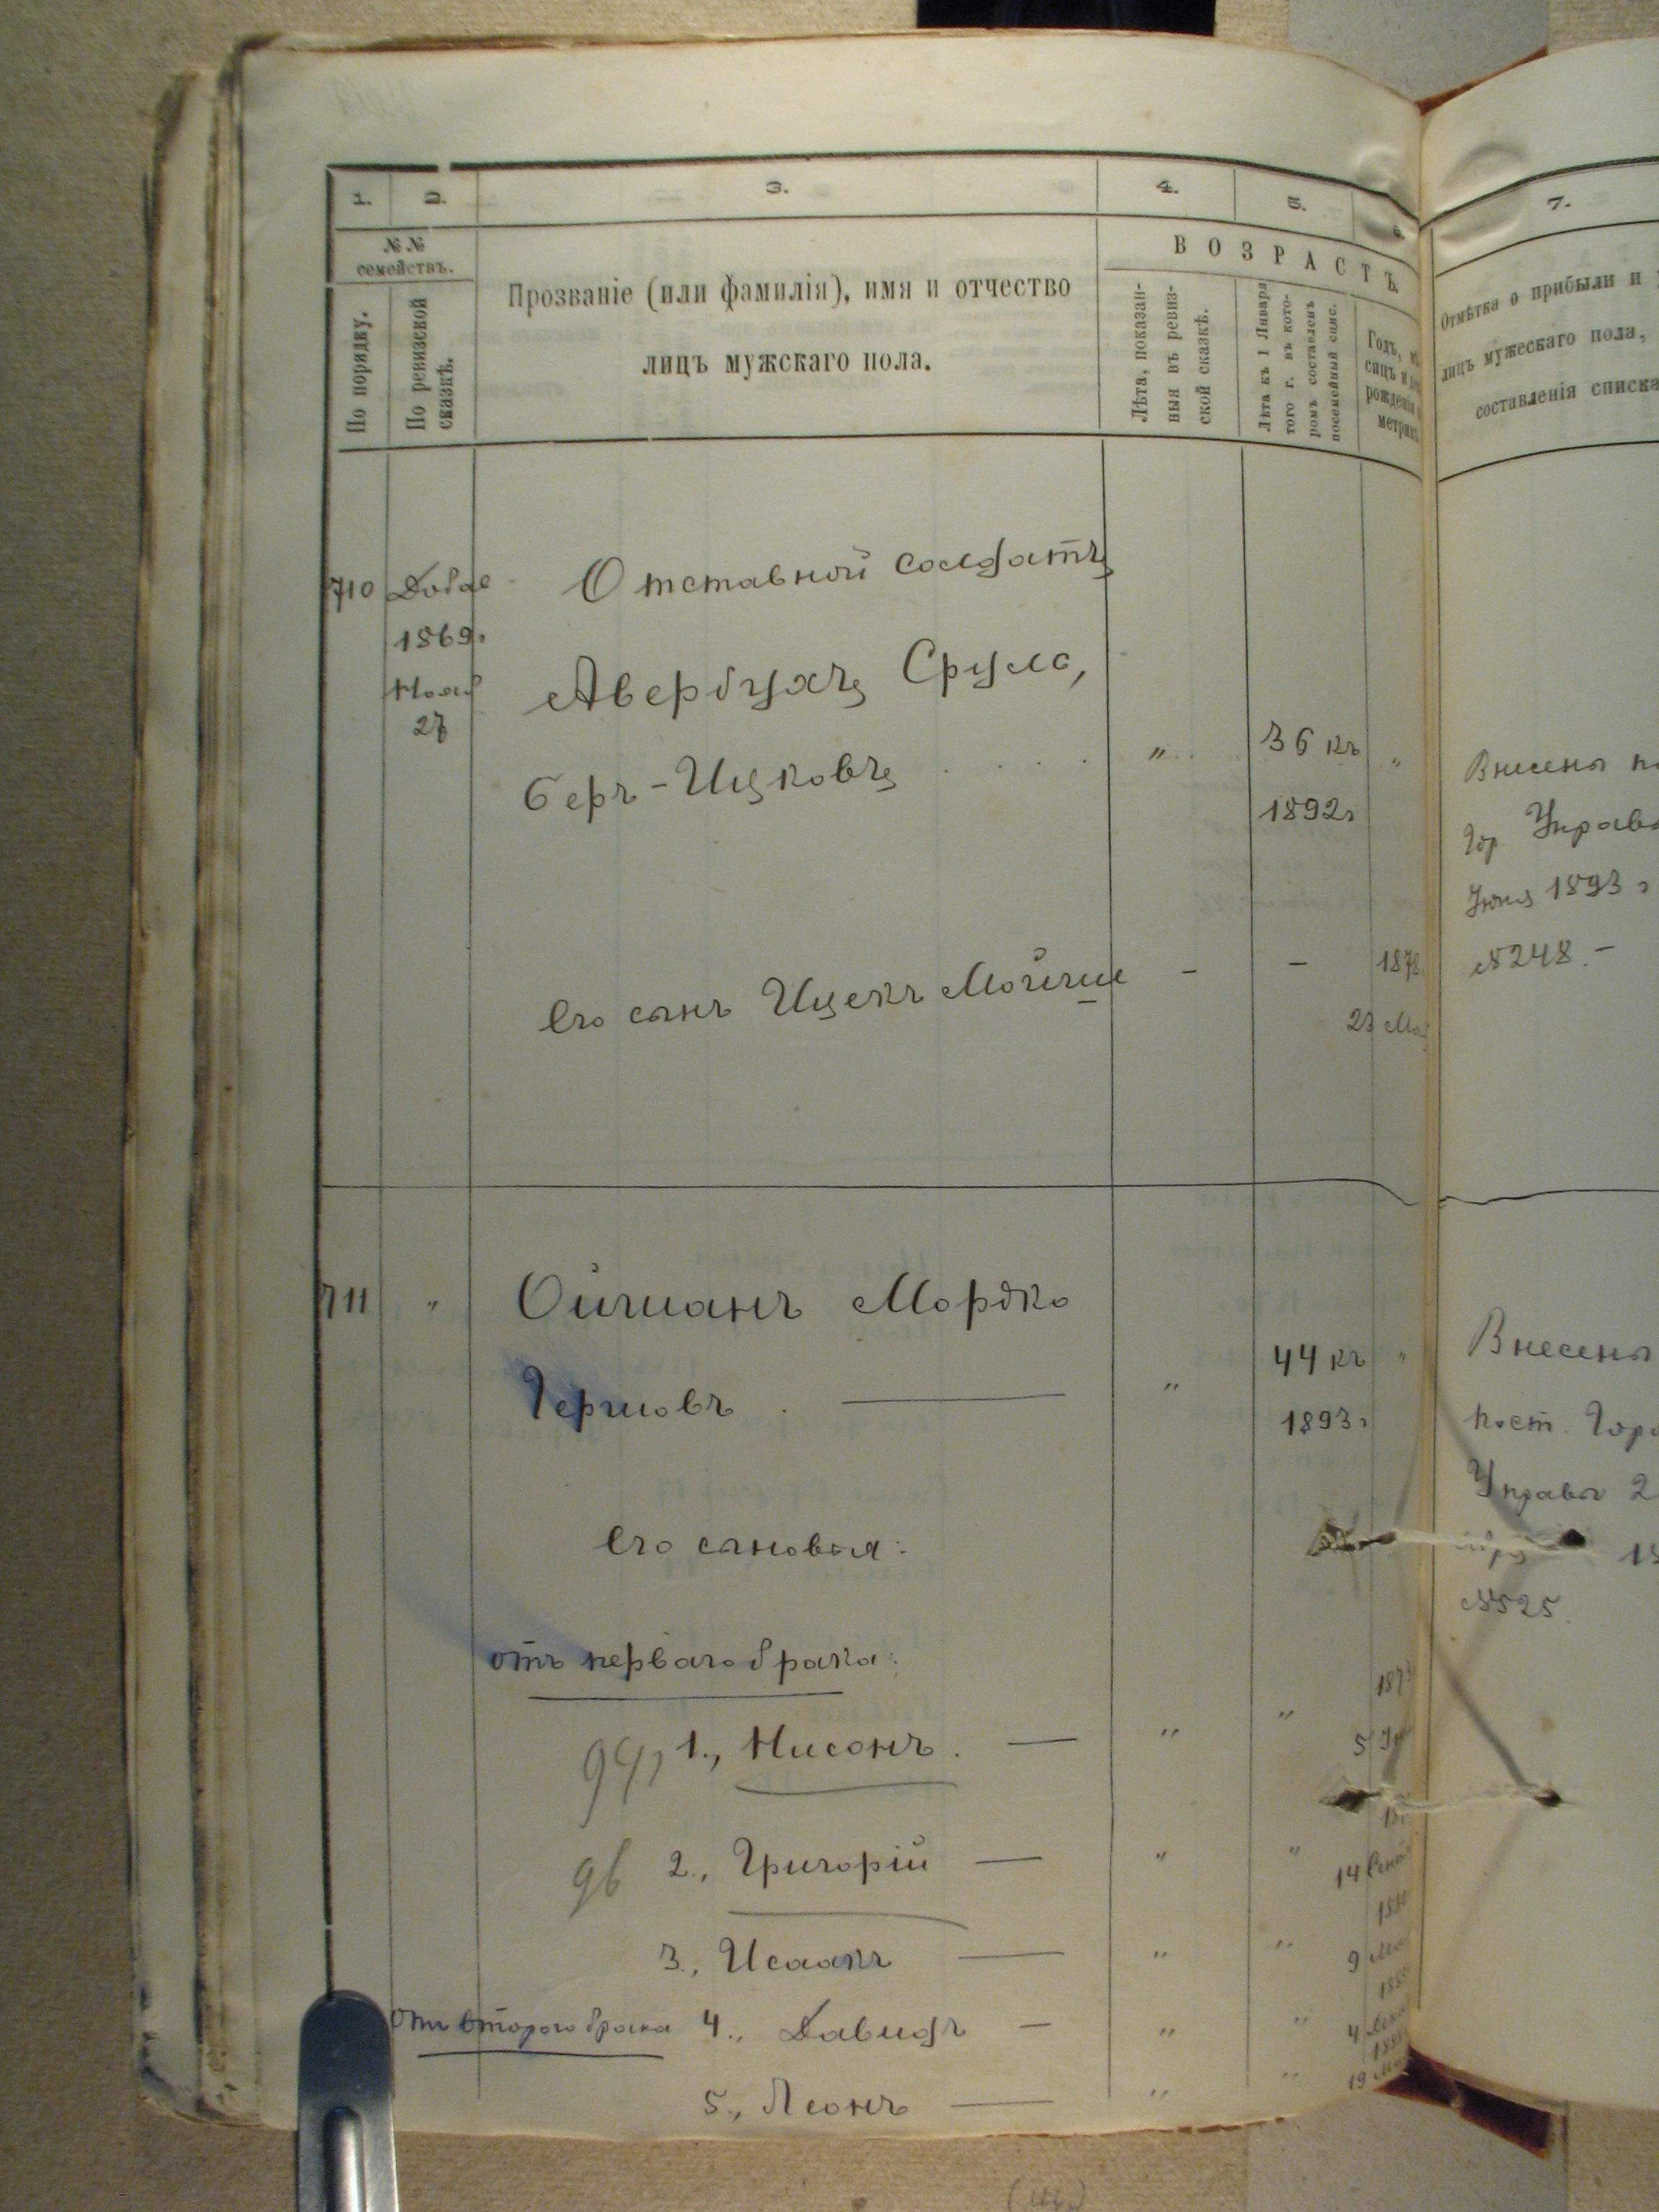 1. 2. 3. 4. 5. 6. 7.
№№ семействъ.
По порядку.
По ревизской сказкѣ.
Прозваніе (или фамилія), имя и отчество
лицъ мужскаго пола.
ВОЗРАСТЪ
Лѣта, показан-
ныя въ ревиз-
ской сказкѣ.
Лѣта къ 1 Января
того г. въ кото-
ромъ составленъ
посемейный спис.
Годъ, мѣ
сяцъ и
рожденія
метрик
Отмѣтка о прибыли и
лицъ мужескаго пола,
составленія списка
710 Добав Отставной солдатъ
1869.
Нояб
27
Авербухъ Срулъ,
Беръ-Ицковъ . . . . „ 36 къ „
1892г
Внесены
Гор Управ
Іюня 1893 г
№248.-
Его сынъ Ицекъ Мойше - - 1878
23 Ма
711 „ Ойшманъ Мордко
Гершовъ . — „ 44 къ „
1893г
Внесены
пост. Гор
Управы 2
№525.
Его сыновья:
отъ перваго брака:
94, 1., Нисонъ. — „ „ 187
5
96 2., Григорій — „ „
14 Сент
3., Исаакъ — „ „ 188
9 Ма
отъ второго брака 4., Давидъ — „ „ 188
4 Дек
5., Леонъ — „ „ 188
19 М